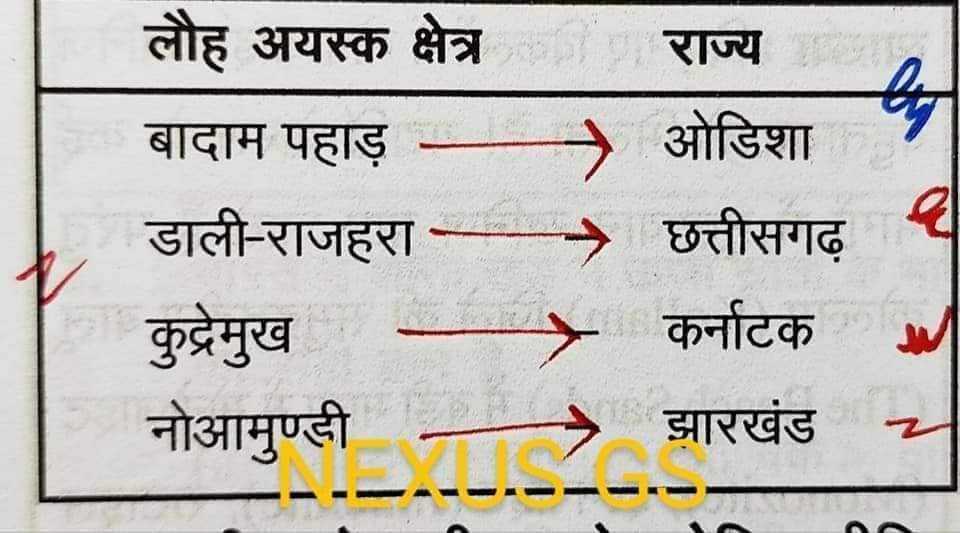 लौह अयस्क क्षेत्र राज्य
बादाम पहाड़ ओडिशा
डाली-राजहरा छत्तीसगढ़
कुद्रेमुख कर्नाटक
नोआमुण्डी झारखंड
NEXUS GS